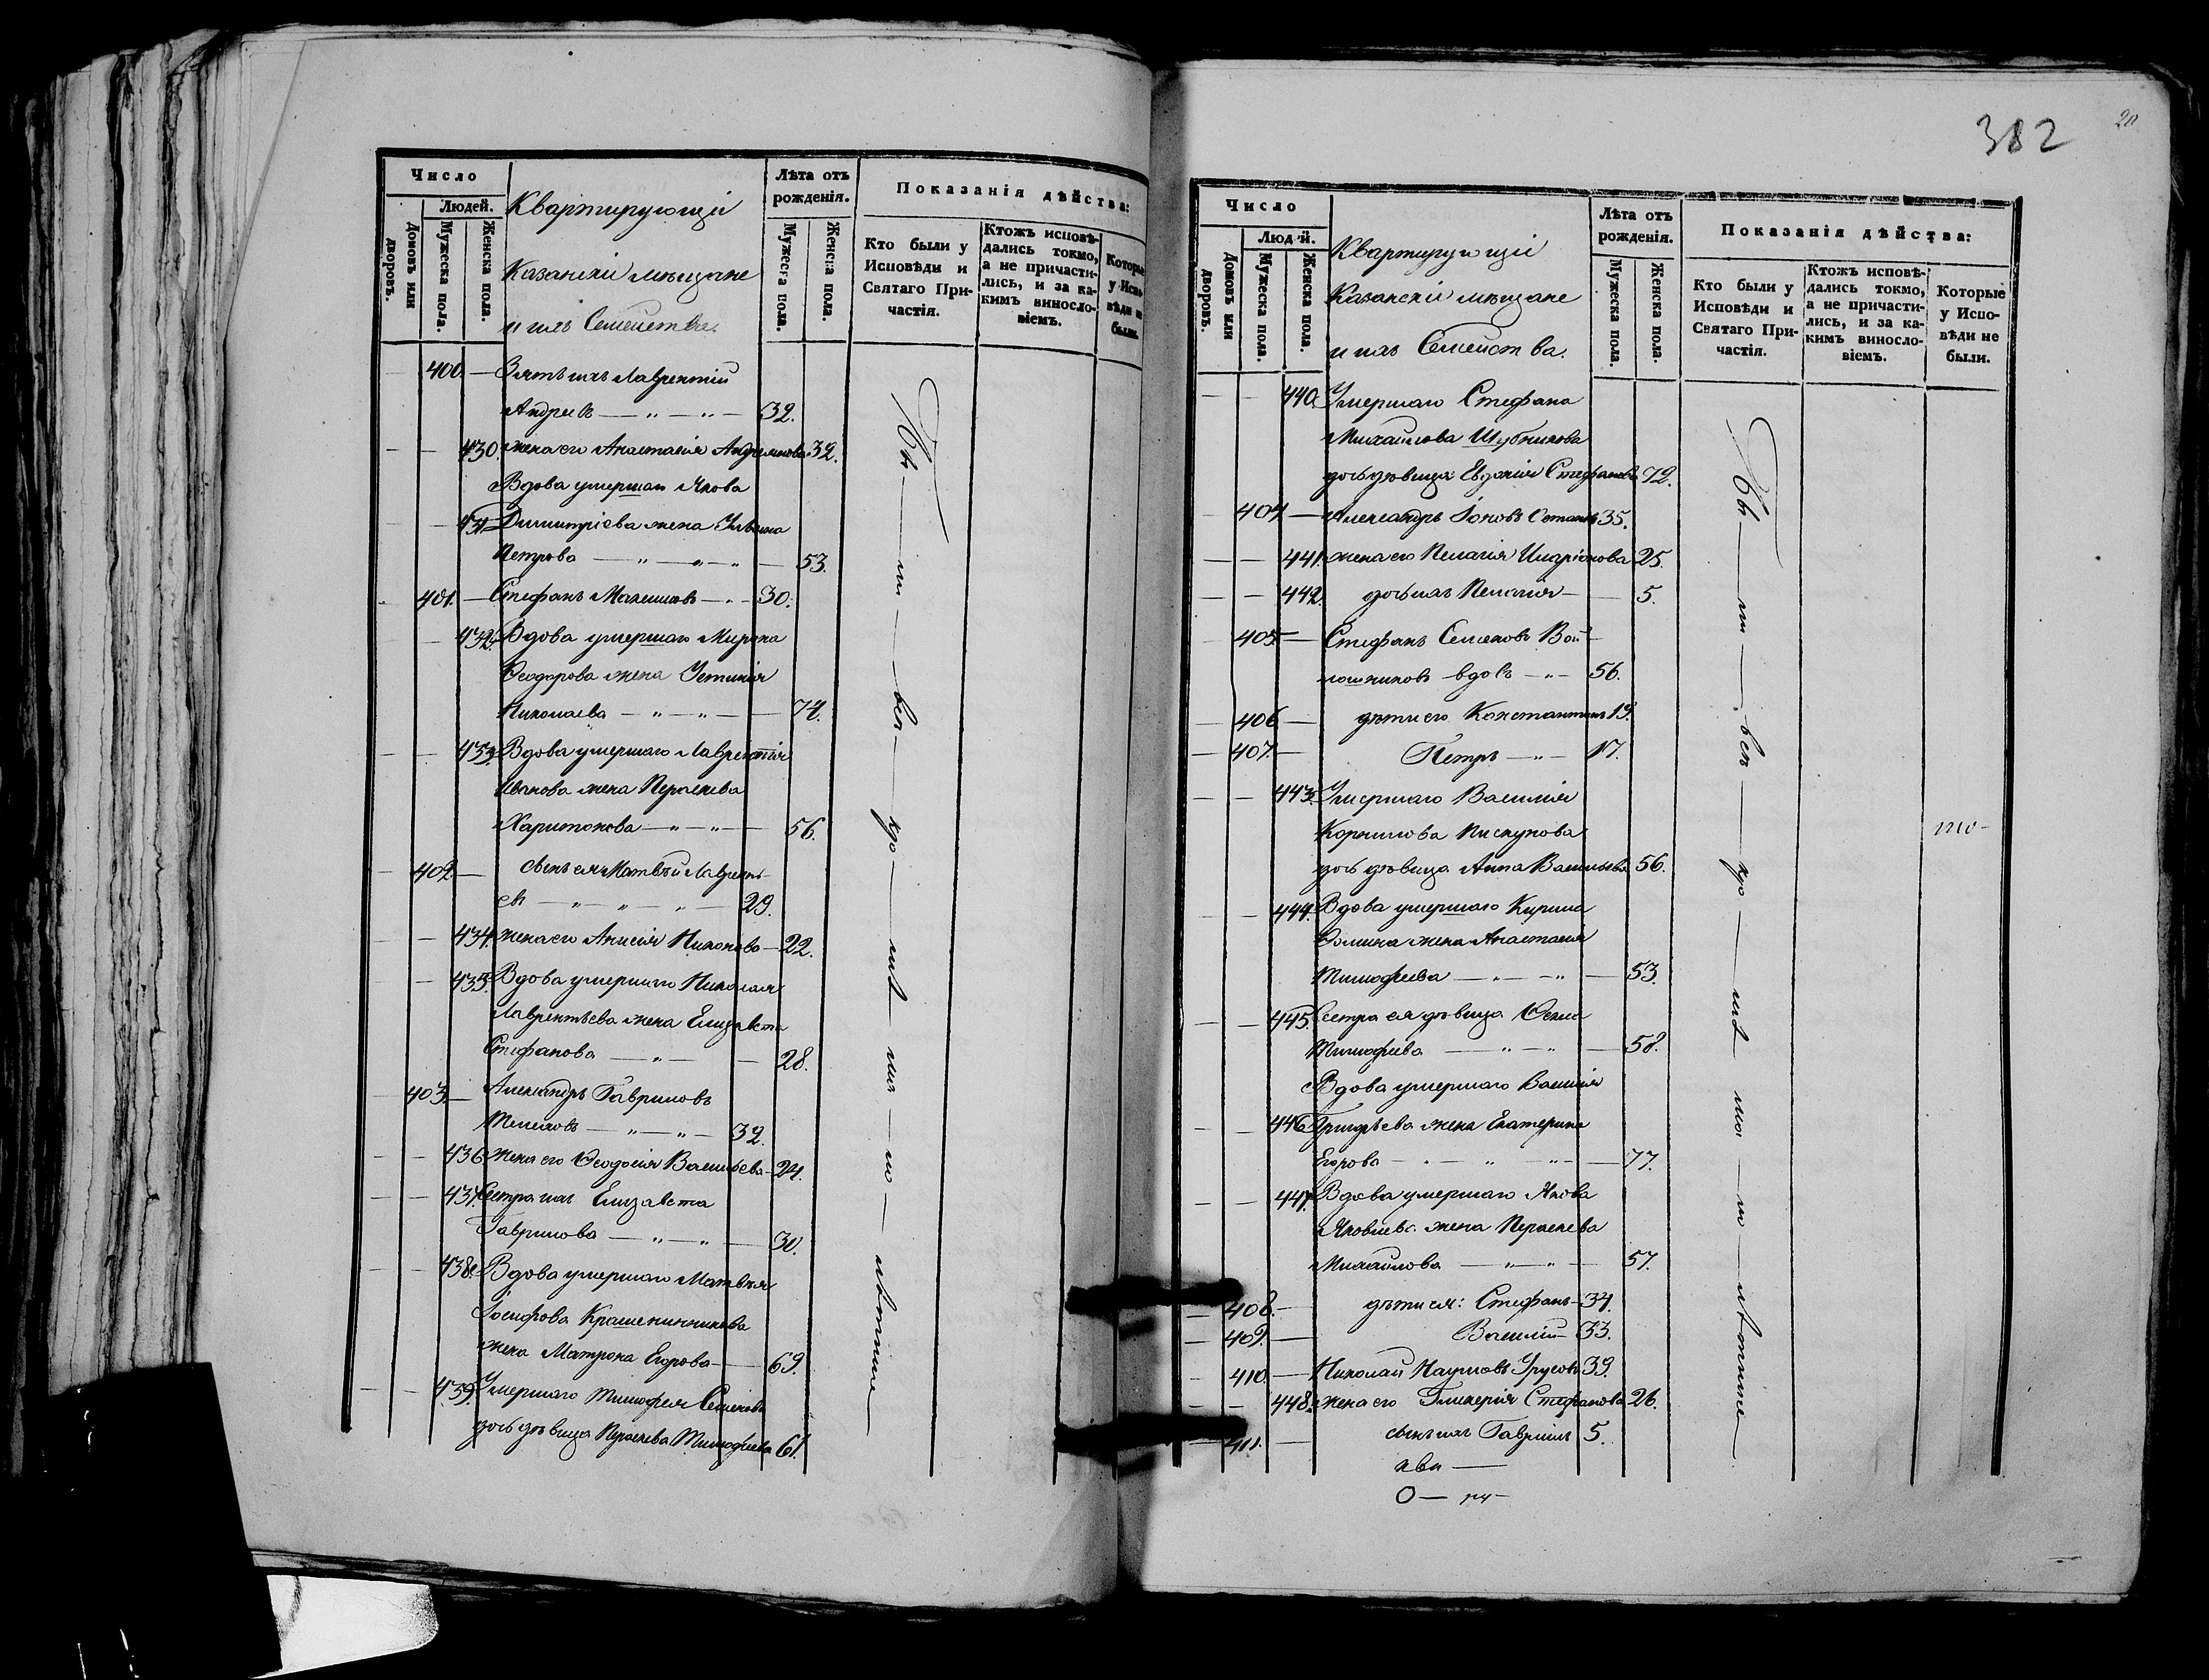 Число
Людей.
Домовъ или дворовъ.
Мужеска пола.
Женска пола.
Квартирующіи
Казанскіи мѣщане
и ихъ Семейства.
Лѣта отъ рожденія.
Мужеска пола.
Женска пола.
Показанія дѣйства:
Кто были у Исповѣди и Святаго Причастія.
Ктожъ исповѣдались токмо, а не причастились, и за какимъ винословіемъ.
Которые у Испо-вѣди не были.
400. — Зять ихъ Лаврентій
Андреевъ — „ — „ — 32.
— — 430. жена его Анастасія 32.
Вдова умершаго Якова
— — 431. Димитріева жена Ульяна
Петрова — „ — „ — „ — 53.
401. — Стефанъ — „ — 30.
— 432. Вдова умершаго Мирона
Ѳеодорова жена Устинія
Николаева — „ — „ — 74.
— — 433. Вдова умершаго Лаврентія
Иванова жена Параскева
Харитонова — „ — „ — 56.
— 402. — сынъ ея Матвѣй Лаврентьевъ — „ — „ — „ — 29.
— — 434. жена его Анисія 22.
— 435. Вдова умершаго Николая
Лаврентьева жена Елизавета
Стефанова — „ — — 28.
— 403. — Александръ Гавриловъ
— „ — „ — 32.
— — 436. жена его Ѳеодосія Васильева — 24.
— — 437. Сестра ихъ Елизавета
Гаврилова — „ — „ — 30.
— — 438. Вдова умершаго Матвѣя
Іосифова Крашенинникова
жена Матрона Егорова — 69.
— — 439. Умершаго Тимофея Семенова
дочь дѣвица Параскева Тимофеева 61.
382
Число
Людей.
Домовъ или дворовъ.
Мужеска пола.
Женска пола.
Квартирующіи
Казанскіи мѣщане
и ихъ Семейства.
Лѣта отъ рожденія.
Мужеска пола.
Женска пола.
Показанія дѣйства:
Кто были у Исповѣди и Святаго Причастія.
Ктожъ исповѣдались токмо, а не причастились, и за какимъ винословіемъ.
Которые у Испо-вѣди не были.
— — 440. Умершаго Стефана
Михайлова Шубникова
дочь дѣвица Евдокія Стефанова 72.
— 404. — Александръ Іоновъ 35.
— — 441. жена его Пелагія Иларіонова 25.
— — 442. дочь ихъ Пелагія — 5.
— 405. — Стефанъ Семеновъ Вой-
лошниковъ вдовъ — „ — 56.
— 406 — дѣти его Константинъ 19.
— 407. — Петръ — „ — 17.
— — 443. Умершаго Василія
Корнилова Пискунова
дочь дѣвица Анна Васильева 56.
— — 444. Вдова умершаго Кирила
Ѳомина жена Анастасія
Тимофеева — „ — „ — 53.
— — 445. Сестра ея дѣвица
Тимофеева — „ — „ — 58.
Вдова умершаго Василія
— — 446. Григорьева жена Екатерина
Егорова — „ — „ — „ — 77.
— — 447. Вдова умершаго Якова
Яковлева жена Параскева
Михайлова — „ — „ — 57.
— 408. — дѣти ея: Стефанъ — 34.
— 409. — Василій 33.
— 410. — Николай Наумовъ Урусовъ 39.
— — 448. жена его Гликерія Стефанова 26.
— 411. — сынъ ихъ Гавріилъ 5.